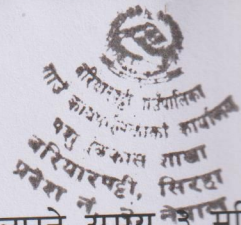 बरियारपट्टी गाउँपालिका
गाउँ कार्यपालिकाको कार्यालय
पशु विकास शाखा
बरियारपट्टी, सिरहा
प्रदेश नं नेपाल